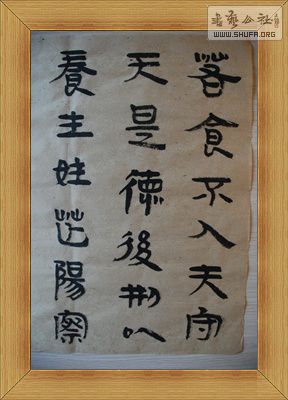 書藝公社
WWW.SHUFA.ORG
食不入夫守
天是德後刑以
養生姓陽察